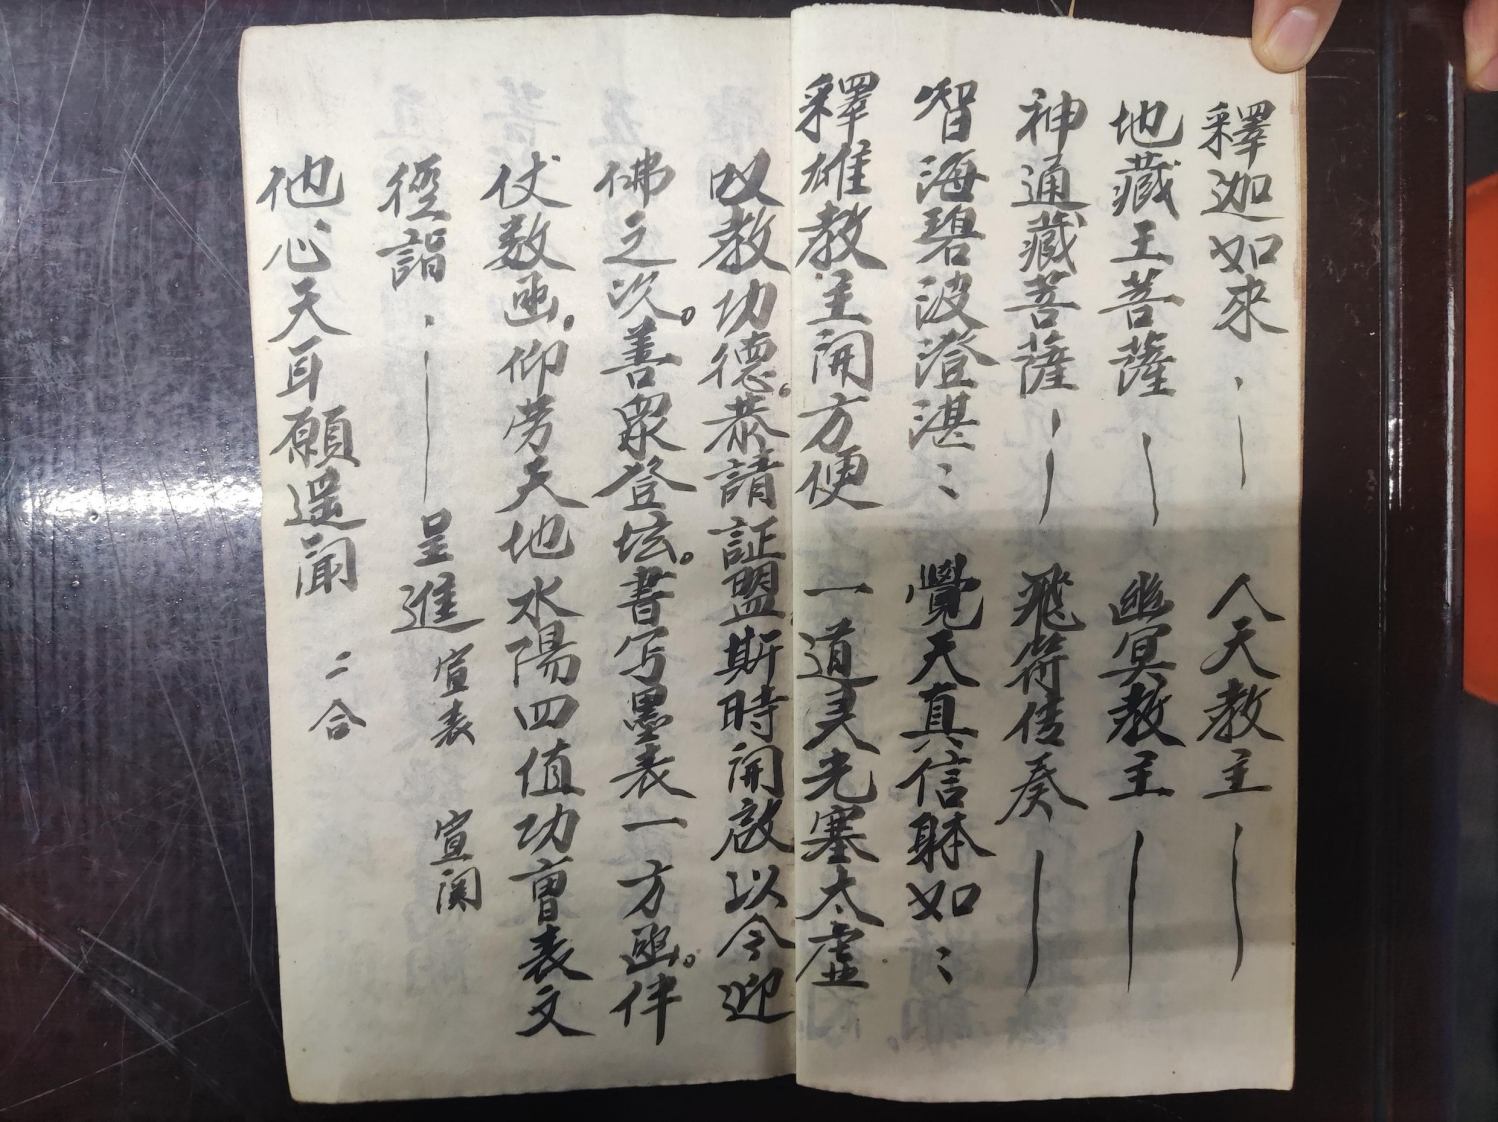 釋迦如來、｜ 人天教主｜
地藏王菩薩｜ 幽冥教主｜
神通藏菩薩｜ 飛符传奏｜
智海碧波澄湛〻 覺天真信躰如〻
釋雄教主開方便 一道灵光塞太虛
叹教功德。恭請証盟斯時開啟以今迎
佛之次。善眾登坛。書写墨表一方函。伴
仗数函。仰劳天地水陽四值功曹表文
徑詣、｜呈進 宣表 宣関
他心天耳願遥聞 二合